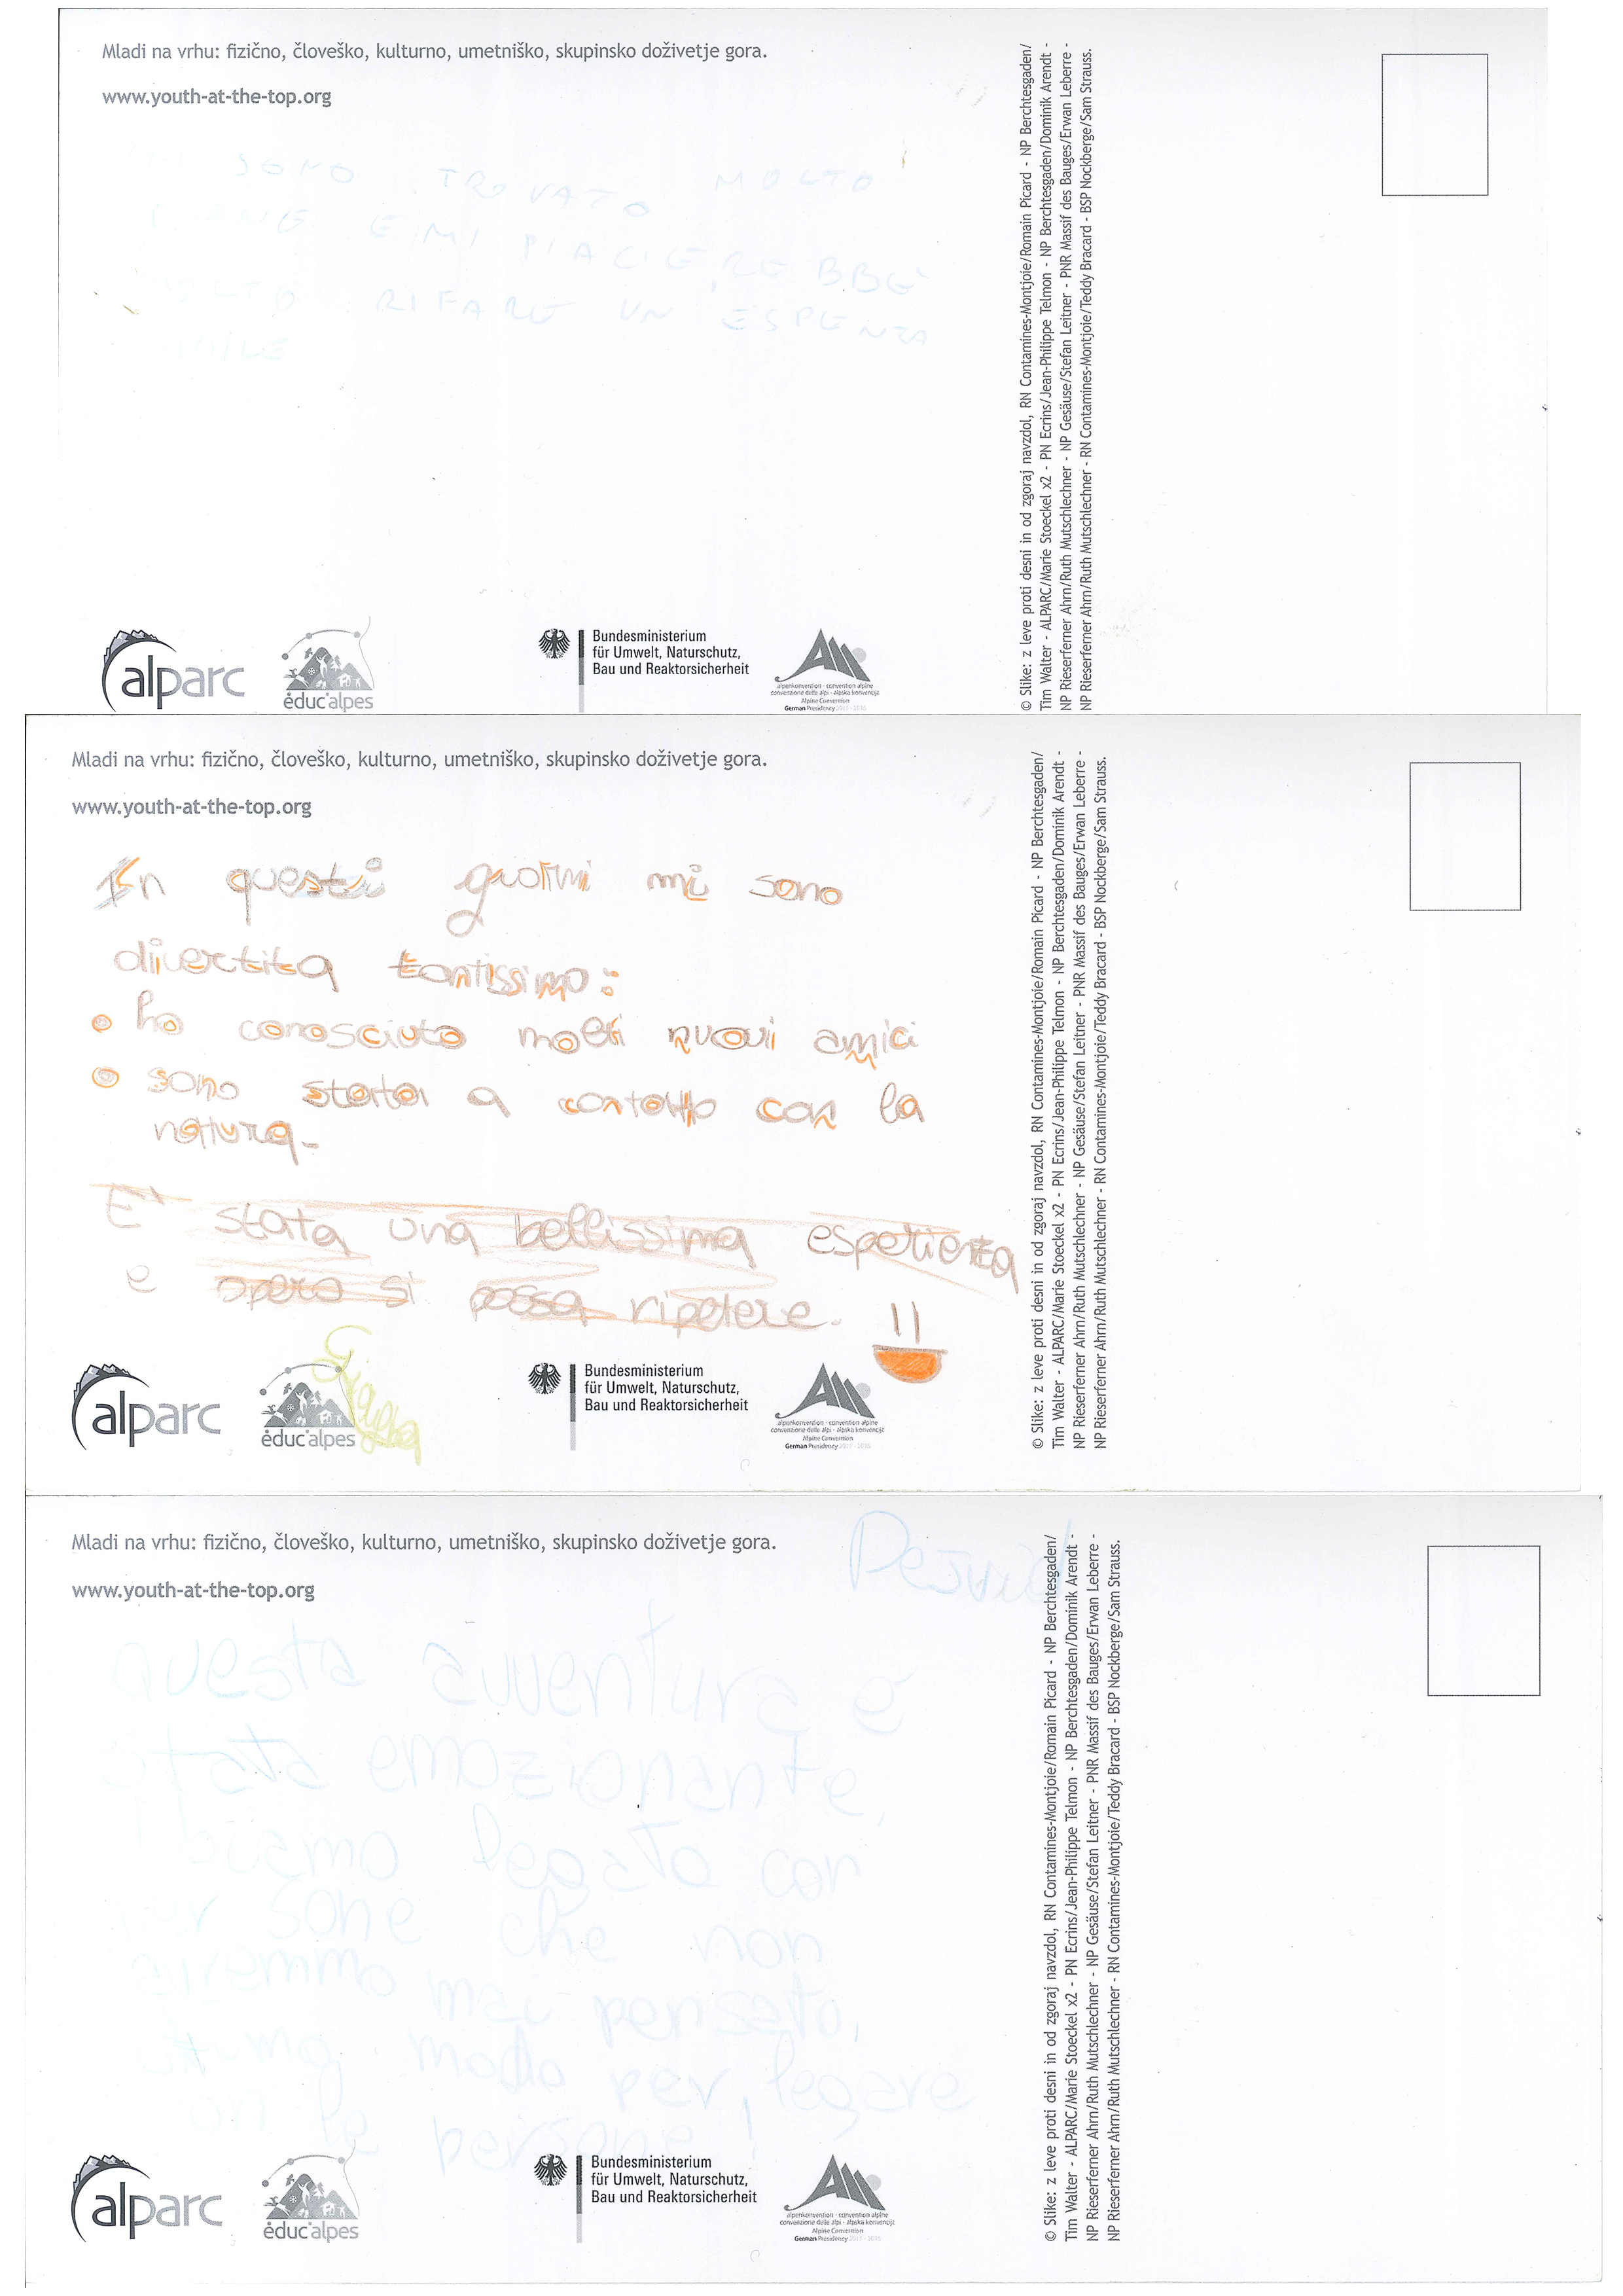 Mladi na vrhu: fizično, človeško, kulturno, umetniško, skupinsko doživetje gora.
www.youth-at-the-top.org
SONO TROVATO MOLTO
E MI PIACIEREBBE
RIFARE UN ESPENZA
alparc
éduc'alpes
Bundesministerium
für Umwelt, Naturschutz,
Bau und Reaktorsicherheit
alpenkonvention · convention alpine
convenzione delle alpi · alpska konvencija
Alpine Convention
German Presidency
© Slike: z leve proti desni in od zgoraj navzdol, RN Contamines-Montjoie/Romain Picard - NP Berchtesgaden/
Tim Walter - ALPARC/Marie Stoeckel x2 - PN Ecrins/Jean-Philippe Telmon - NP Berchtesgaden/Dominik Arendt -
NP Rieserferner Ahrn/Ruth Mutschlechner - NP Gesäuse/Stefan Leitner - PNR Massif des Bauges/Erwan Leberre -
NP Rieserferner Ahrn/Ruth Mutschlechner - RN Contamines-Montjoie/Teddy Bracard - BSP Nockberge/Sam Strauss.
Mladi na vrhu: fizično, človeško, kulturno, umetniško, skupinsko doživetje gora.
www.youth-at-the-top.org
In questi giorni mi sono
divertita tantissimo:
ho conosciuto molti nuovi amici
sono stata a contatto con la
natura.
E' stata una bellissima esperienza
e spero si possa ripetere.
alparc
éduc'alpes
Bundesministerium
für Umwelt, Naturschutz,
Bau und Reaktorsicherheit
alpenkonvention · convention alpine
convenzione delle alpi · alpska konvencija
Alpine Convention
German Presidency
© Slike: z leve proti desni in od zgoraj navzdol, RN Contamines-Montjoie/Romain Picard - NP Berchtesgaden/
Tim Walter - ALPARC/Marie Stoeckel x2 - PN Ecrins/Jean-Philippe Telmon - NP Berchtesgaden/Dominik Arendt -
NP Rieserferner Ahrn/Ruth Mutschlechner - NP Gesäuse/Stefan Leitner - PNR Massif des Bauges/Erwan Leberre -
NP Rieserferner Ahrn/Ruth Mutschlechner - RN Contamines-Montjoie/Teddy Bracard - BSP Nockberge/Sam Strauss.
Mladi na vrhu: fizično, človeško, kulturno, umetniško, skupinsko doživetje gora.
www.youth-at-the-top.org
questa avventura è
stata emozionante,
legato con
per sone che non
mai pensato,
modo per legare
le persone!
alparc
éduc'alpes
Bundesministerium
für Umwelt, Naturschutz,
Bau und Reaktorsicherheit
alpenkonvention · convention alpine
convenzione delle alpi · alpska konvencija
Alpine Convention
German Presidency
© Slike: z leve proti desni in od zgoraj navzdol, RN Contamines-Montjoie/Romain Picard - NP Berchtesgaden/
Tim Walter - ALPARC/Marie Stoeckel x2 - PN Ecrins/Jean-Philippe Telmon - NP Berchtesgaden/Dominik Arendt -
NP Rieserferner Ahrn/Ruth Mutschlechner - NP Gesäuse/Stefan Leitner - PNR Massif des Bauges/Erwan Leberre -
NP Rieserferner Ahrn/Ruth Mutschlechner - RN Contamines-Montjoie/Teddy Bracard - BSP Nockberge/Sam Strauss.